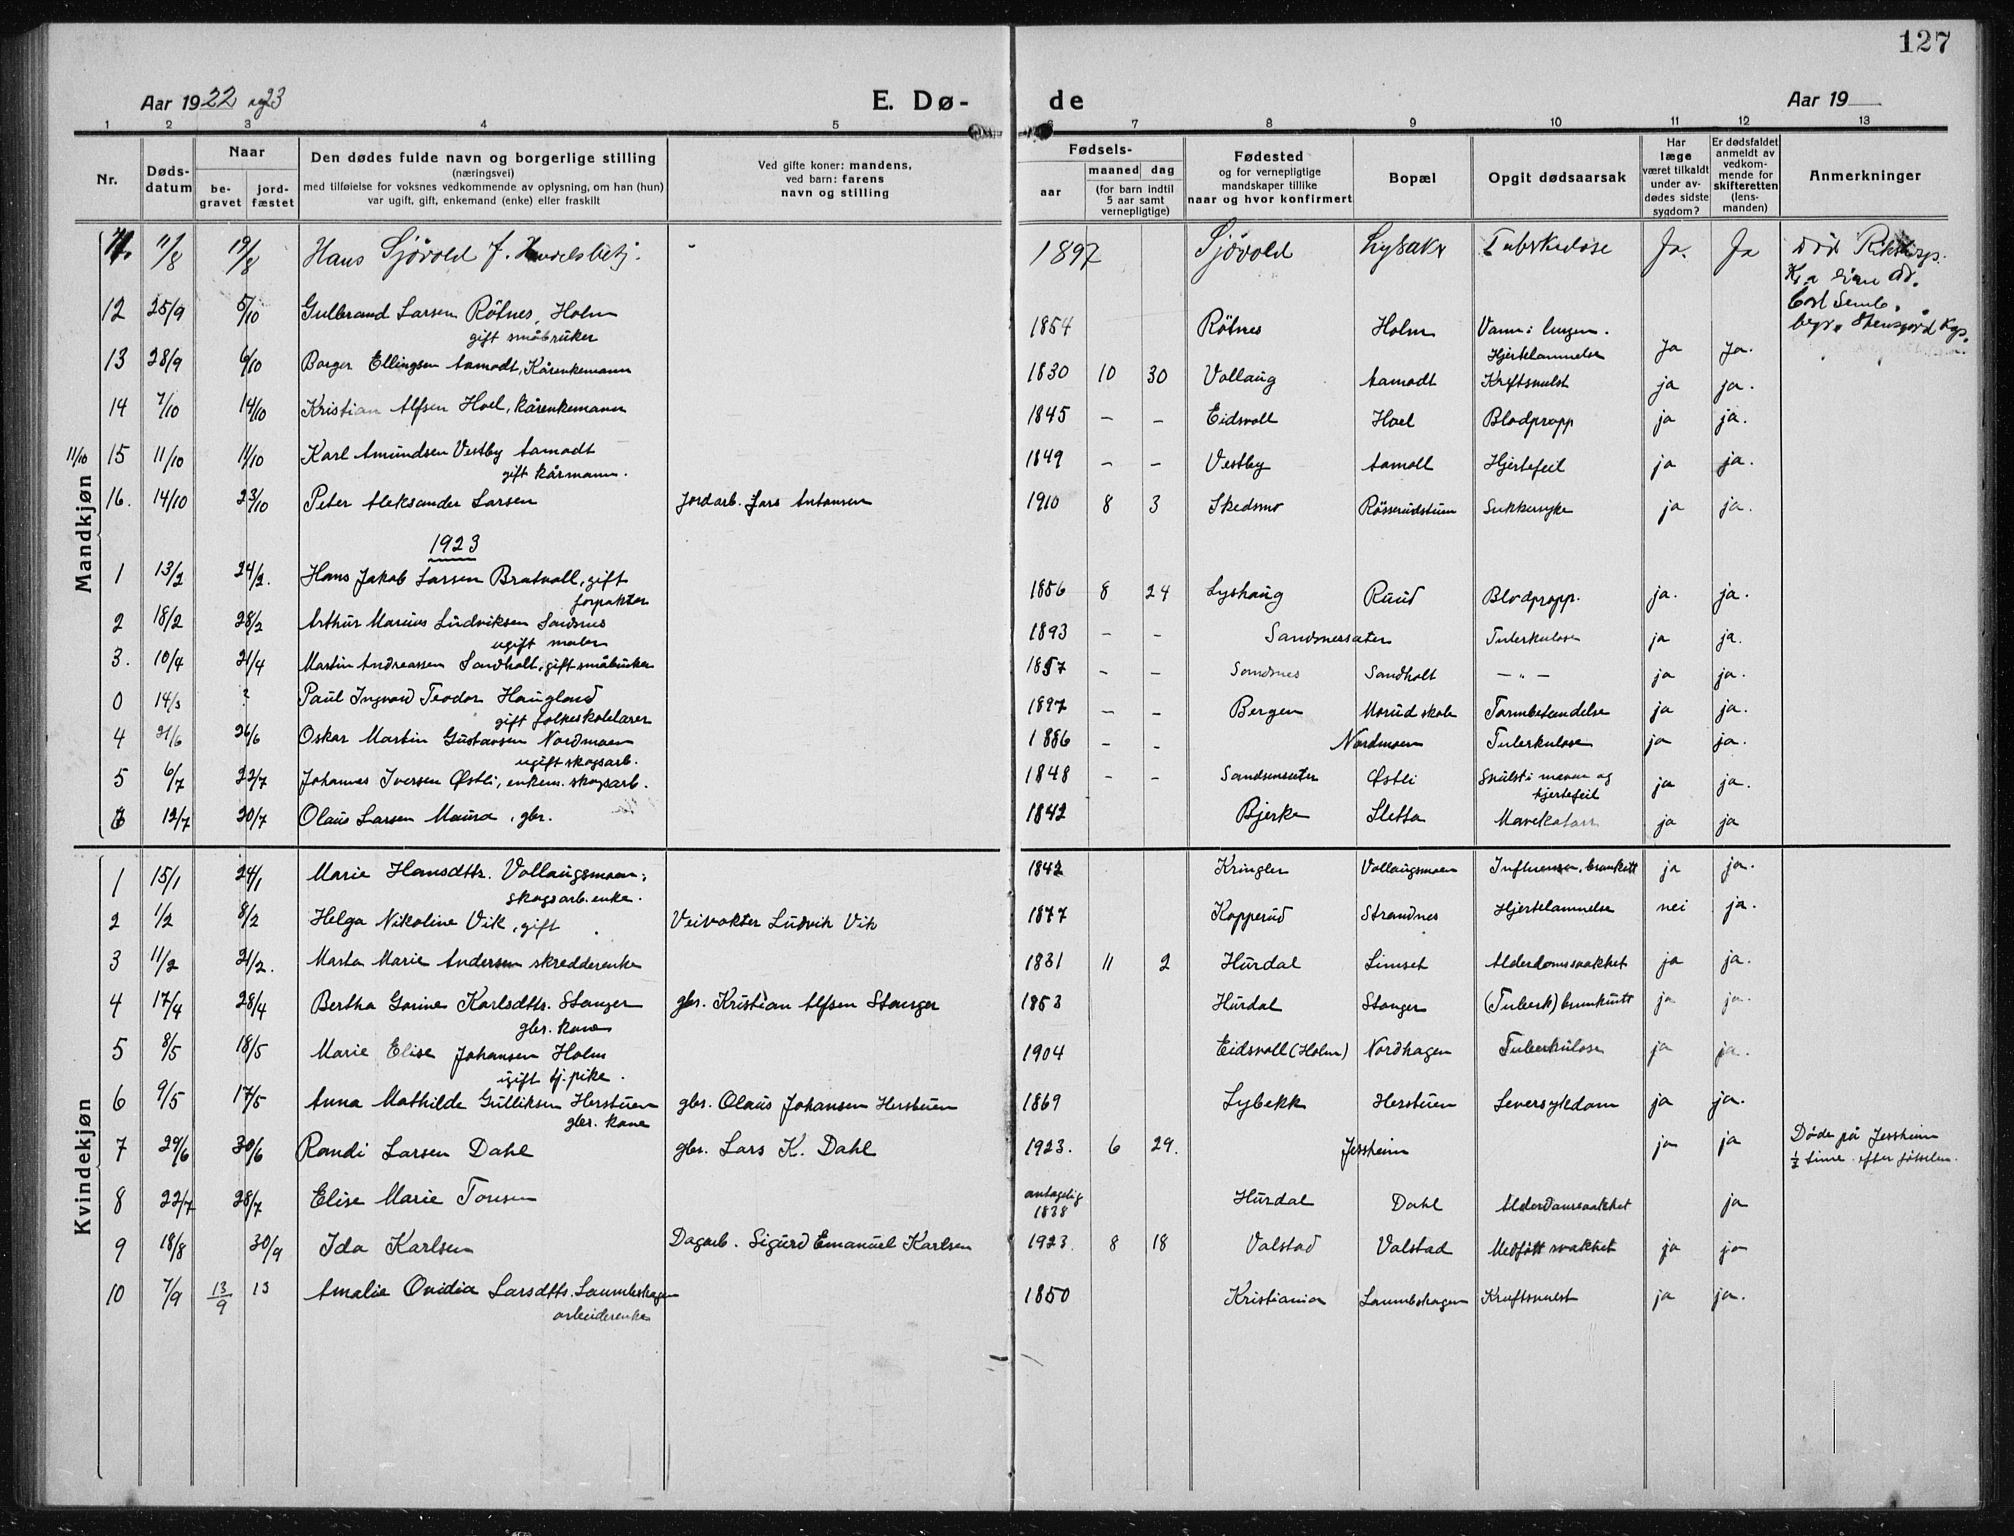 127
Aar 1922 og 23
E. Dø-
de
Aar 19
1 2 3 4 5 6 7 8 9 10 11 12 13
Nr.
Døds-
datum
Naar
be-
gravet
jord-
fæstet
Den dødes fulde navn og borgerlige stilling
(næringsvei)
med tilføielse for voksnes vedkommende av oplysning, om han (hun)
var ugift, gift, enkemand (enke) eller fraskilt
Ved gifte koner: mandens,
ved barn: farens
navn og stilling
Fødsels-
aar
maaned dag
(for barn indtil
5 aar samt
vernepligtige)
Fødested
og for vernepligtige
mandskaper tillike
naar og hvor konfirmert
Bopæl
Opgit dødsaarsak
Har
læge
været tilkaldt
under av-
dødes sidste
sygdom?
Er dødsfaldet
anmeldt av
vedkom-
mende for
skifteretten
(lens-
manden)
Anmerkninger
Mandkjøn
11. 11/8 19/8 Hans Sjøvold f. Handelsbetj. - 1897 Sjøvold Lysaker Tuberkulose Ja. Ja
12 25/9 5/10 Gulbrand Larsen Røtnes, Holm 1854 Røtnes Holm Vann i lungen.
gift småbruker Hjertelammelse Ja Ja.
begr.
13 28/9 6/10 Borger Ellingsen Aamodt, Kårenkemann 1830 10 30 Vollaug Aamodt Kreftsvulst ja ja.
14 7/10 14/10 Kristian Alfsen Hoel, kårenkemann 1845 - - Eidsvoll Hoel Blodpropp ja ja.
11/10 15 11/10 11/10 Karl Amundsen Vestby Aamodt 1849 - - Vestby Aamodt Hjertefeil ja ja.
gift kårmann.
16. 14/10 23/10 Peter Aleksander Larsen Jordarb. Lars Antonsen 1910 8 3 Skedsmo Røsserudstuen Sukkersyke ja ja.
1923
1 13/2 24/2. Hans Jakob Larsen Bratvoll, gift 1856 8 24 Lyshaug Ruud Blodpropp. ja. ja.
forpakter
2 18/2 28/2 Arthur Marius Ludviksen Sandsnes 1893 - - Sandsnessæter Tuberkulose ja ja.
ugift maler
3. 10/4 21/4 Martin Andreassen Sandholt, gift småbruker 1857 - - Sandsnes Sandholt - " - ja ja.
0 14/5 ? Paul Ingvard Teodor Haugland 1897 - - Bergen Morud skole Tarmbetændelse ja ja.
gift folkeskolelærer
4 21/6 26/6 Oskar Martin Gustavsen Nordmoen 1886 - - Nordmoen Tuberkulose ja ja.
ugift skogsarb.
5 6/7 22/7 Johannes Iversen Østli, enkem. skogsarb. 1848 - - Sandsnessæter Østli Svulst i maven og ja ja.
hjertefeil
6 12/7 20/7 Olaus Larsen Maura, gbr. 1842 Bjerke Sletta Mavekatarr ja ja
Kvindekjøn
1 15/1 24/1 Marie Hansdttr. Vollaugsmoen, 1842 Kringler Vollaugsmoen Influensa, bronkitt ja ja.
skogsarb. enke.
2 1/2 8/2 Helga Nikoline Vik, gift Veivokter Ludvik Vik 1877 Kopperud Strandnes Hjertelammelse nei ja.
3 11/2 21/2. Marta Marie Andersen skredderenke 1831 11 2 Hurdal Limset Alderdomssvakhet ja ja.
4 17/4 28/4 Bertha Gorine Karlsdttr. Stanger gbr. Kristian Alfsen Stanger 1853 Hurdal Stanger (Tuberk) bronkitt ja ja.
gbr. kone
5 8/5 18/5 Marie Elise Johansen Holm 1904 Eidsvoll (Holm) Nordhagen Tuberkulose ja ja.
ugift tj. pike.
6 9/5 17/5 Anna Mathilde Gulliksen Herstuen gbr. Olaus Johansen Herstuen 1869 Lybekk Herstuen Leversykdom ja ja.
gbr. kone
7 29/6 30/6 Randi Larsen Dahl gbr. Lars K. Dahl 1923. 6 29. Jessheim ja ja Døde på Jessheim
½ time efter fødselen.
8 22/7 28/7 Elise Marie Toresen antagelig 1838 Hurdal Dahl Alderdomssvakhet ja
9 18/8 30/9 Ida Karlsen Dagarb. Sigurd Emanuel Karlsen 1923. 8 18 Valstad Valstad Medfødt svakhet ja ja
10 7/9 13/9 13 Amalie Ovidia Larsdttr. Laumbshagen 1850 Kristiania Laumbshagen Kreftsvulst ja ja.
arbeiderenke